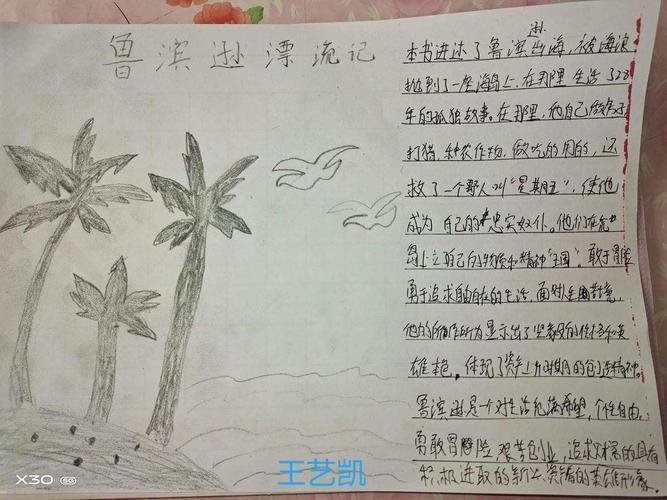 鲁滨逊漂流记
本书讲述了鲁滨逊出海,被海浪
抛到了一座海岛上,在那里生活了28
年的孤独故事。在那里,他自己做房子
打猎,种农作物,做吃的用的,还
救了一个野人叫"星期五",使他
成为自己的忠实奴仆。他们在荒
岛上立自己的物质和精神"王国"。敢于冒险
勇于追求自由自在的生活,面对人生困苦境,
他的所作所为显示出了坚毅的性格和英
雄本色,体现了资产上升时期的创造精神。
鲁滨逊是一个对生活充满希望,个性自由,
勇敢冒险 艰苦创业,追求财富的具有
积极进取的新兴资产者的英雄形象。
王艺凯
X30 5G